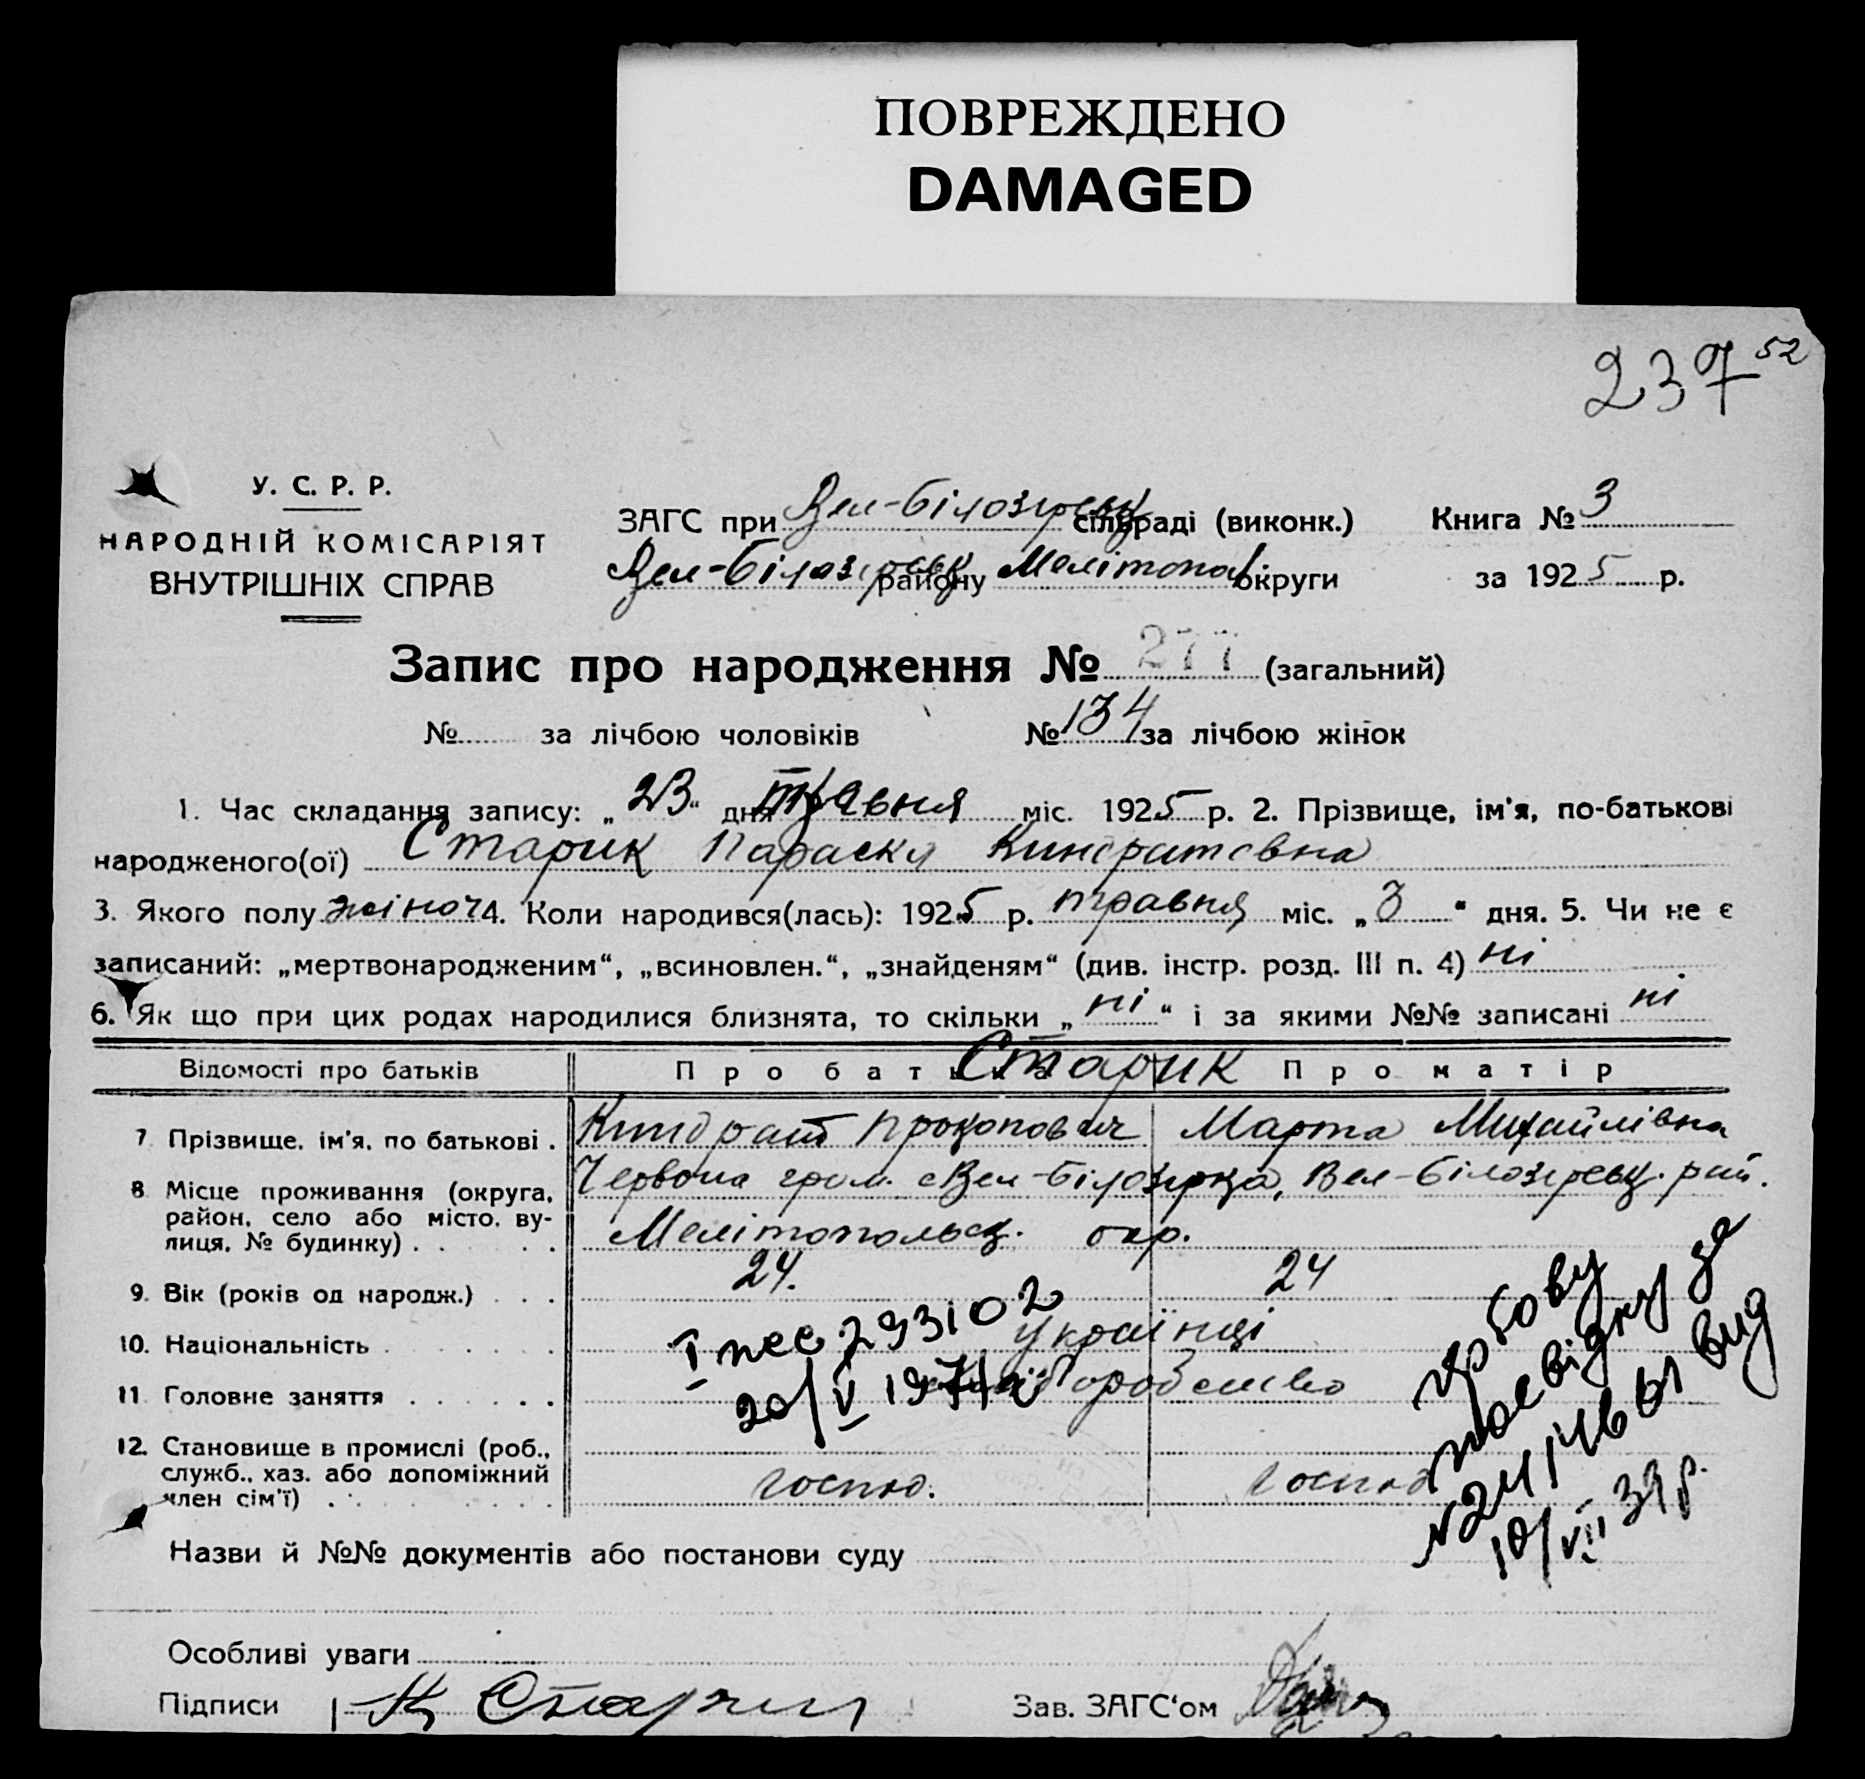 ПОВРЕЖДЕНО
DAMAGED
237 52
У. С. Р. Р.
НАРОДНІЙ КОМІСАРІЯТ
ВНУТРІШНІХ СПРАВ
ЗАГС при Вел-Білозірськ сільраді (виконк.) Книга № 3
Вел-Білозірськ району Мелітопол округи за 1925 р.
Запис про народження № 277 (загальний)
№ за лічбою чоловіків № 134 за лічбою жінок
1. Час складання запису: „23“ дня травня міс. 1925 р. 2. Прізвище, ім'я, по-батькові
народженого(ої) Старик Параска Киндратовна
3. Якого полу жіноч 4. Коли народився(лась): 1925 р. травня міс. „3“ дня. 5. Чи не є
записаний: „мертвонародженим“, „всиновлен.“, „знайденям“ (див. інстр. розд. III п. 4) ні
6. Як що при цих родах народилися близнята, то скільки „ні“ і за якими №№ записані ні
Відомості про батьків Про батька Старик Про матір
7. Прізвище, ім'я, по батькові . Киндрат Прокопович Марта Михайлівна
8. Місце проживання (округа, район, село або місто, вулиця, № будинку) . . . Червона гром. с Вел-Білозірка, Вел-Білозірськ. рай.
Мелітопольськ. окр.
9. Вік (років од народж.) . . . 24. 24
10. Національність . українці
11. Головне заняття . хліборобство
12. Становище в промислі (роб., служб., хаз. або допоміжний член сім'ї) . господ. господ
I 293102
20/V 197
посвідку за
10/VII 39 р.
Назви й №№ документів або постанови суду
Особливі уваги
Підписи К Старик Зав. ЗАГС'ом